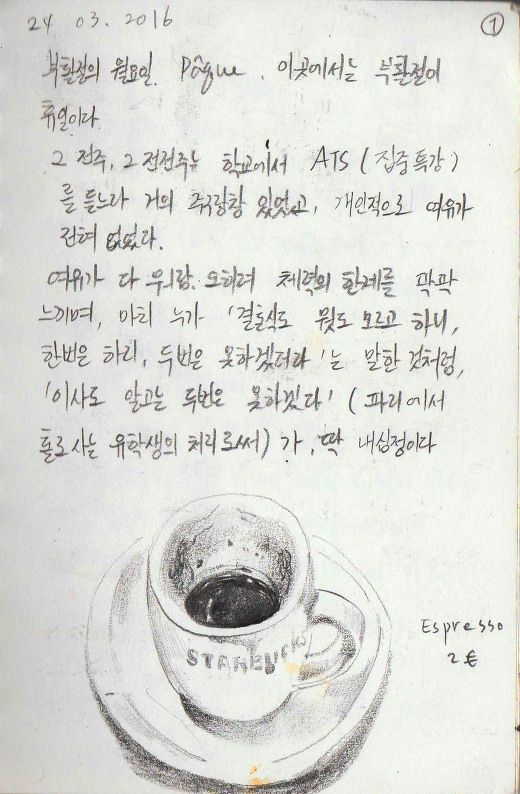 24 03. 2016
①
부활절의 월요일. Pâque. 이곳에서는 부활절이
휴일이다.
2 전주, 2 전전주는 학교에서 ATS (집중특강)
를 듣느라 거의 죽구랑창 있었고, 개인적으로 여유가
전혀 없었다.
여유가 다 뭐랑. 오히려 체력의 한계를 팍팍
느끼며, 마치 누가 '결혼식도 뭣도 모르고 하니,
한번은 하리, 두번은 못하겠더라'는 말한 것처럼,
'이사도 알고는 두번은 못하겠다' (파리에서
홀로사는 유학생의 처리로써) 가, 딱 내심정이다
STARBUCKS
Espresso
2 €